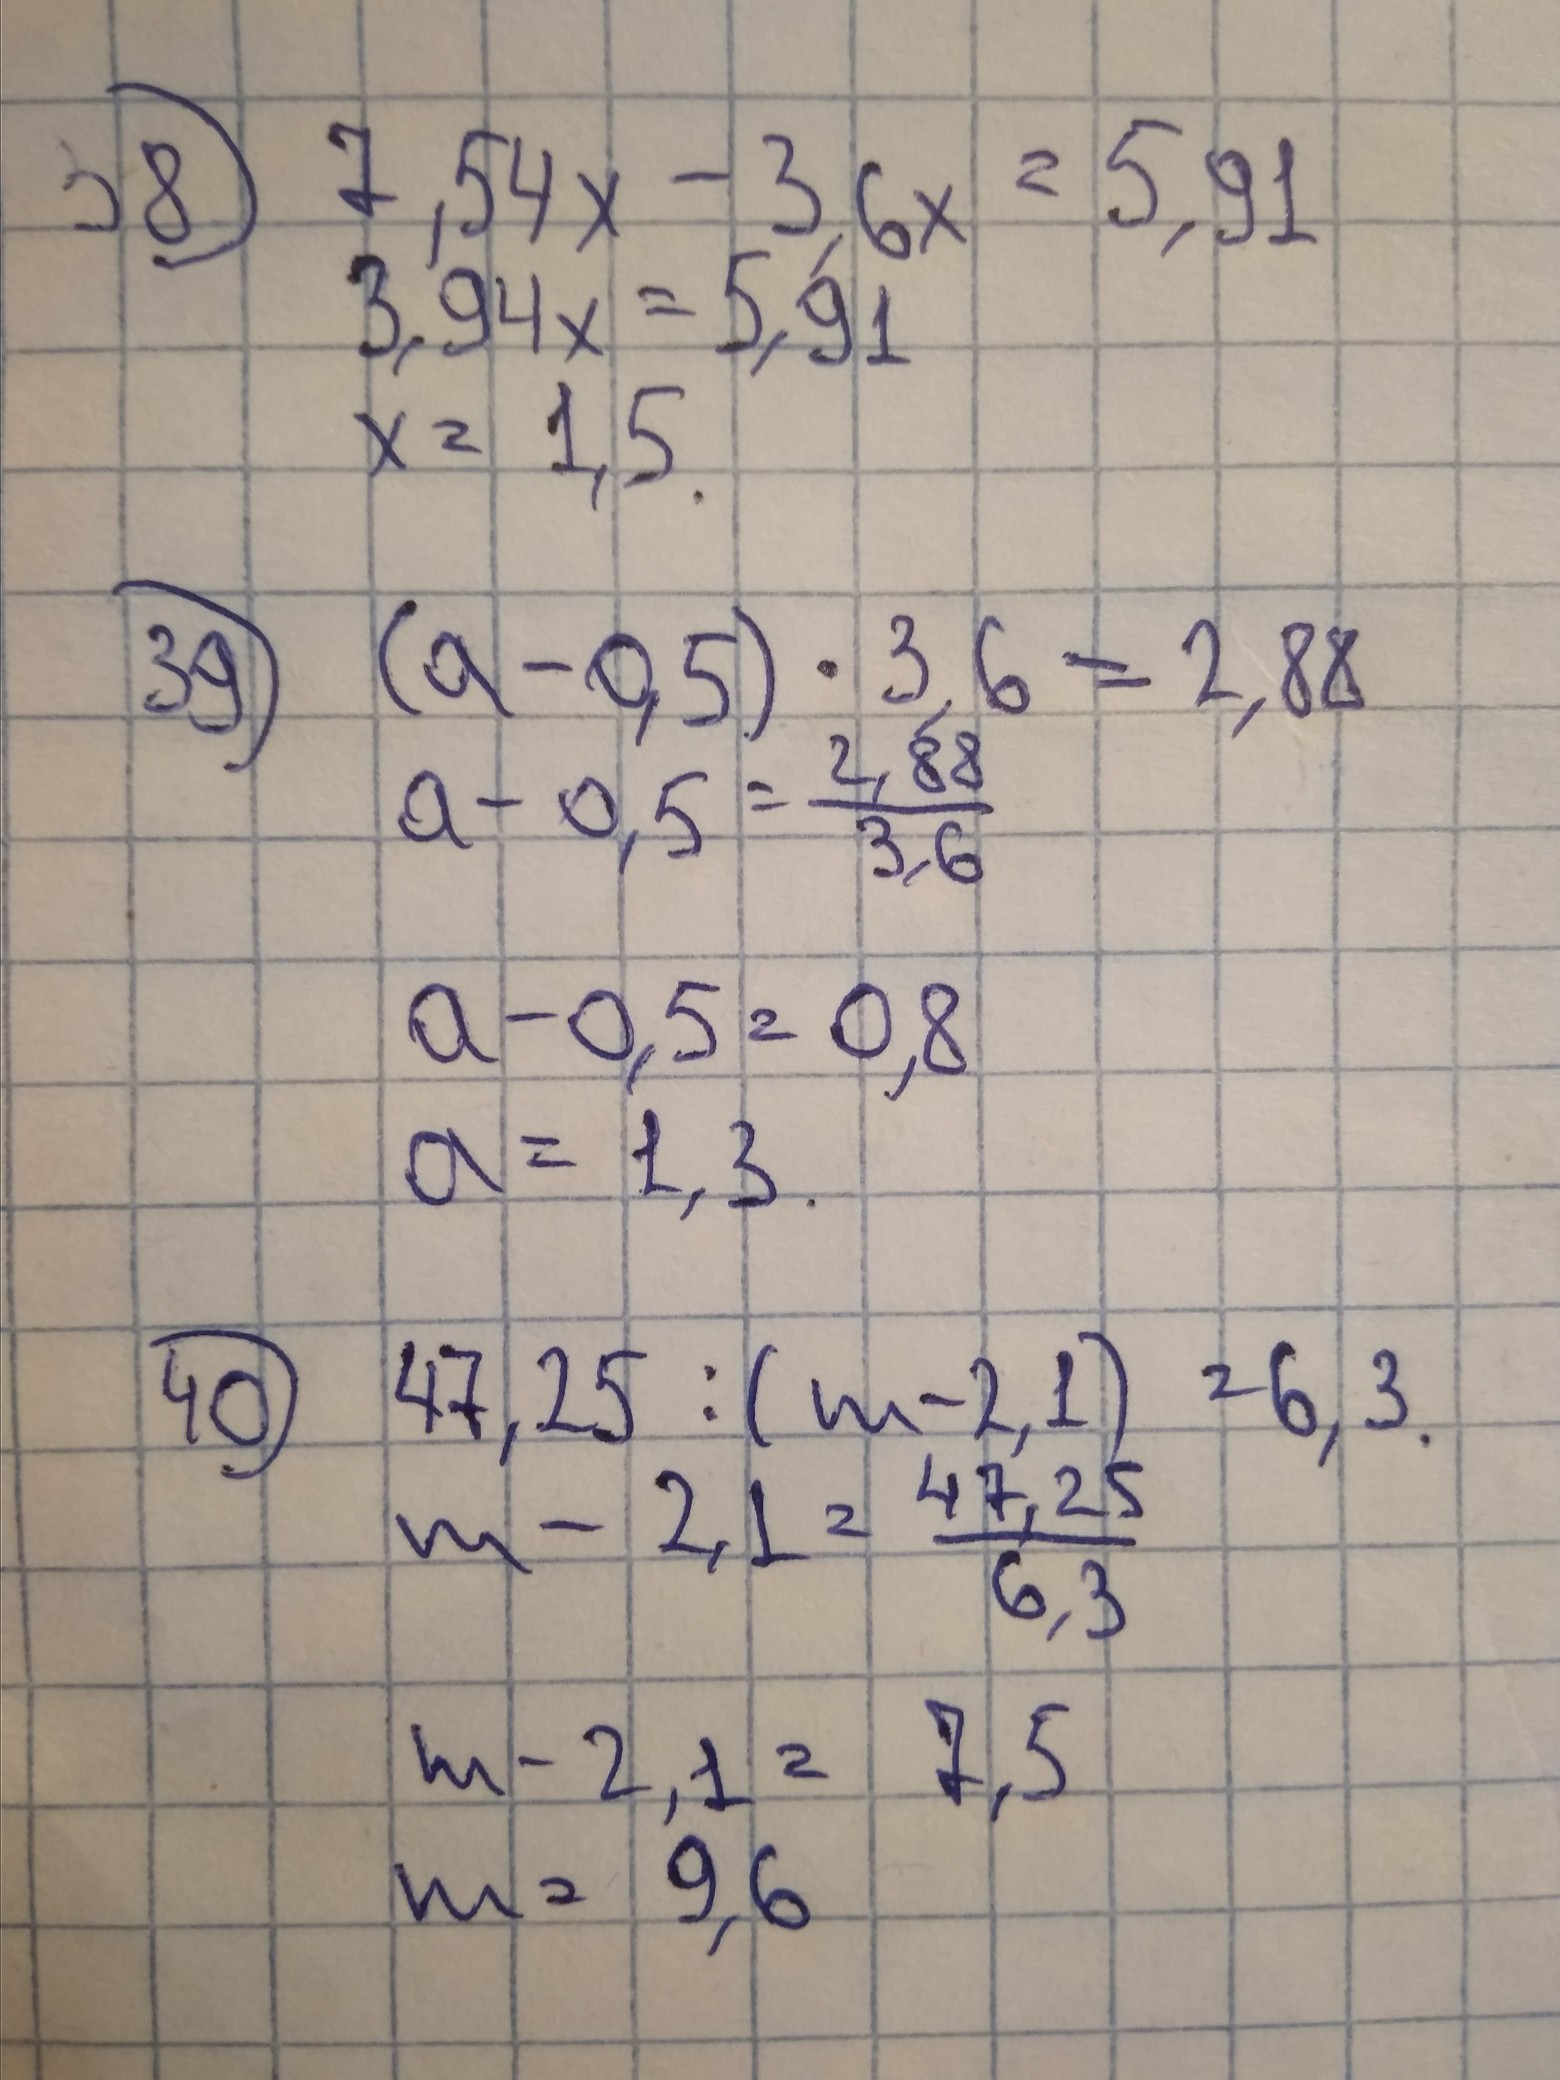 38) 7,54x - 3,6x = 5,91
3,94x = 5,91
x = 1,5.
39) (a - 0,5) · 3,6 = 2,88
a - 0,5 = 2,88/3,6
a - 0,5 = 0,8
a = 1,3.
40) 47,25 : (m - 2,1) = 6,3.
m - 2,1 = 47,25/6,3
m - 2,1 = 7,5
m = 9,6